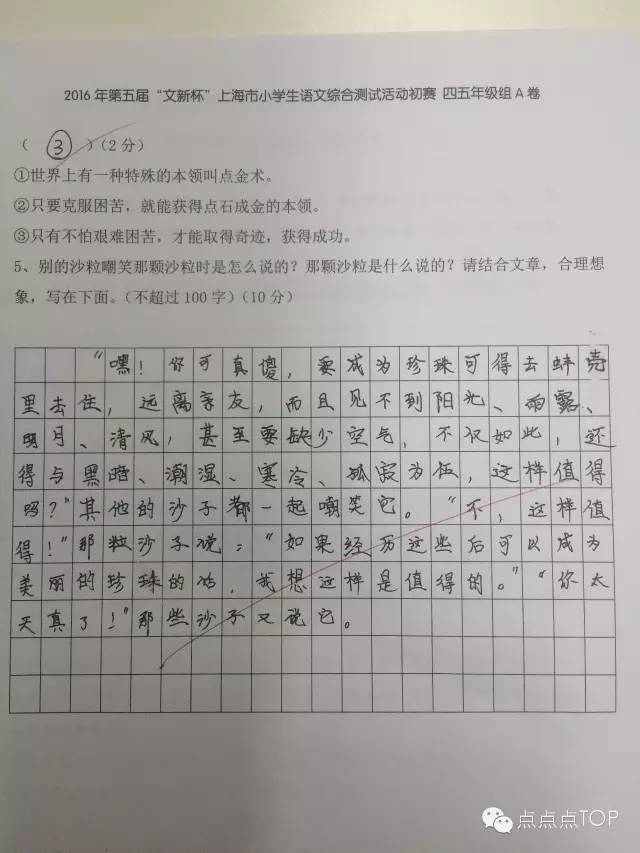 2016 年第五届“文新杯”上海市小学生语文综合测试活动初赛 四五年级组 A 卷
（ ③ ）（2 分）
①世界上有一种特殊的本领叫点金术。
②只要克服困苦，就能获得点石成金的本领。
③只有不怕艰难困苦，才能取得奇迹，获得成功。
5、别的沙粒嘲笑那颗沙粒时是怎么说的？那颗沙粒是什么说的？请结合文章，合理想
象，写在下面。（不超过 100 字）（10 分）
“嘿！你可真傻，要成为珍珠可得去蚌壳
里去住，远离亲友，而且见不到阳光、雨露、
明月、清风，甚至要缺少空气，不仅如此，还
得与黑暗、潮湿、寒冷、孤寂为伍，这样值得
吗？”其他的沙子都一起嘲笑它。“不，这样值
得！”那粒沙子说：“如果经历这些后可以成为
美丽的珍珠的话，我想这样是值得的。”“你太
天真了！”那些沙子又说它。
点点点TOP